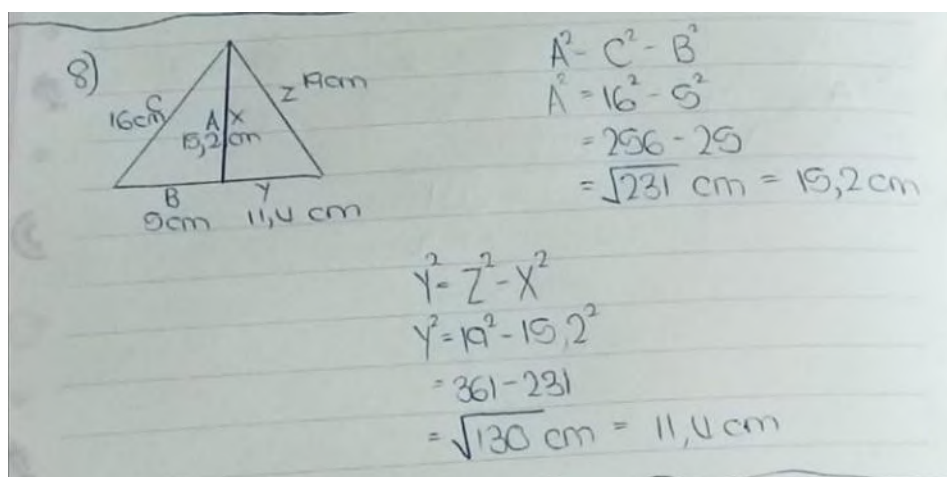 8)
C
16cm
A
15,2
X
cm
Z 19cm
B
5cm
Y
11,4 cm
A² = C² - B²
A² = 16² - 5²
= 256 - 25
= √231 cm = 15,2 cm
Y² = Z² - X²
Y² = 19² - 15,2²
= 361 - 231
= √130 cm = 11,4 cm